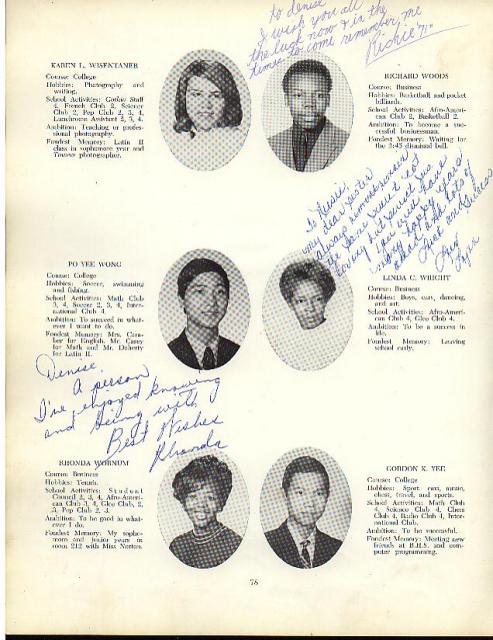 to denise
I wish you all
the luck now & in the
times to come remember me
Richie "71"
KAREN L. WISENTANER
Course: College
Hobbies: Photography and
writing.
School Activities: Gothic Staff
4, French Club 2, Science
Club 2, Pep Club 2, 3, 4,
Lunchroom Assistant 2, 3, 4.
Ambition: Teaching or profes-
sional photography.
Fondest Memory: Latin II
class in sophomore year and
photographer.
RICHARD WOODS
Course: Business
Hobbies: Basketball and pocket
billiards.
School Activities: Afro-Ameri-
can Club 2, Basketball 2.
Ambition: To become a suc-
cessful businessman.
Fondest Memory: Waiting for
the 2:45 dismissal bell.
my dear sister
always
the
you will have
many happy years
ahead and lots of
Luck and
PO YEE WONG
Course: College
Hobbies: Soccer, swimming
and fishing.
School Activities: Math Club
3, 4, Soccer 2, 3, 4, Inter-
national Club 4.
Ambition: To succeed in what-
ever I want to do.
Fondest Memory: Mrs.
for English, Mr. Casey
for Math and Mr. Doherty
for Latin II.
LINDA C. WRIGHT
Course: Business
Hobbies: Boys, cars, dancing,
and art.
School Activities: Afro-Ameri-
can Club 4, Glee Club 4.
Ambition: To be a success in
life.
Fondest Memory: Leaving
school early.
Denise,
A person
I've enjoyed knowing
and being with
Best Wishes
Rhonda
RHONDA WORNUM
Course: Business
Hobbies: Tennis.
School Activities: Student
Council 2, 3, 4, Afro-Ameri-
can Club 3, 4, Glee Club, 2,
3, Pep Club 2, 3.
Ambition: To be good in what-
ever I do.
Fondest Memory: My sopho-
more and junior years in
room 212 with Miss
GORDON K. YEE
Course: College
Hobbies: Sport cars, music,
chess, travel, and sports.
School Activities: Math Club
4, Science Club 4, Chess
Club 4, Radio Club 4, Inter-
national Club.
Ambition: To be successful.
Fondest Memory: Meeting new
friends at B.H.S. and com-
puter programming.
78